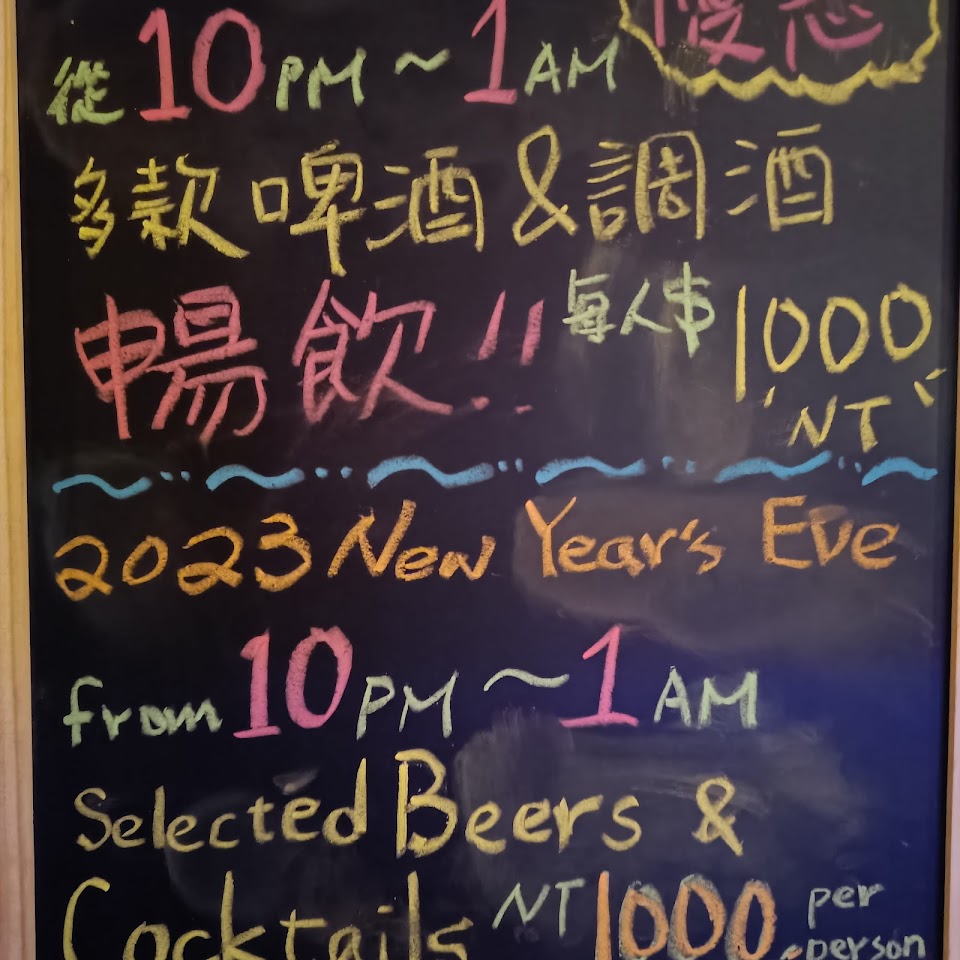 優惠
從 10 PM ~ 1 AM
多款啤酒&調酒
暢飲!! 每人$ 1000
NT
2023 New Year's Eve
from 10 PM ~ 1 AM
Selected Beers &
Cocktails NT 1000 per
person